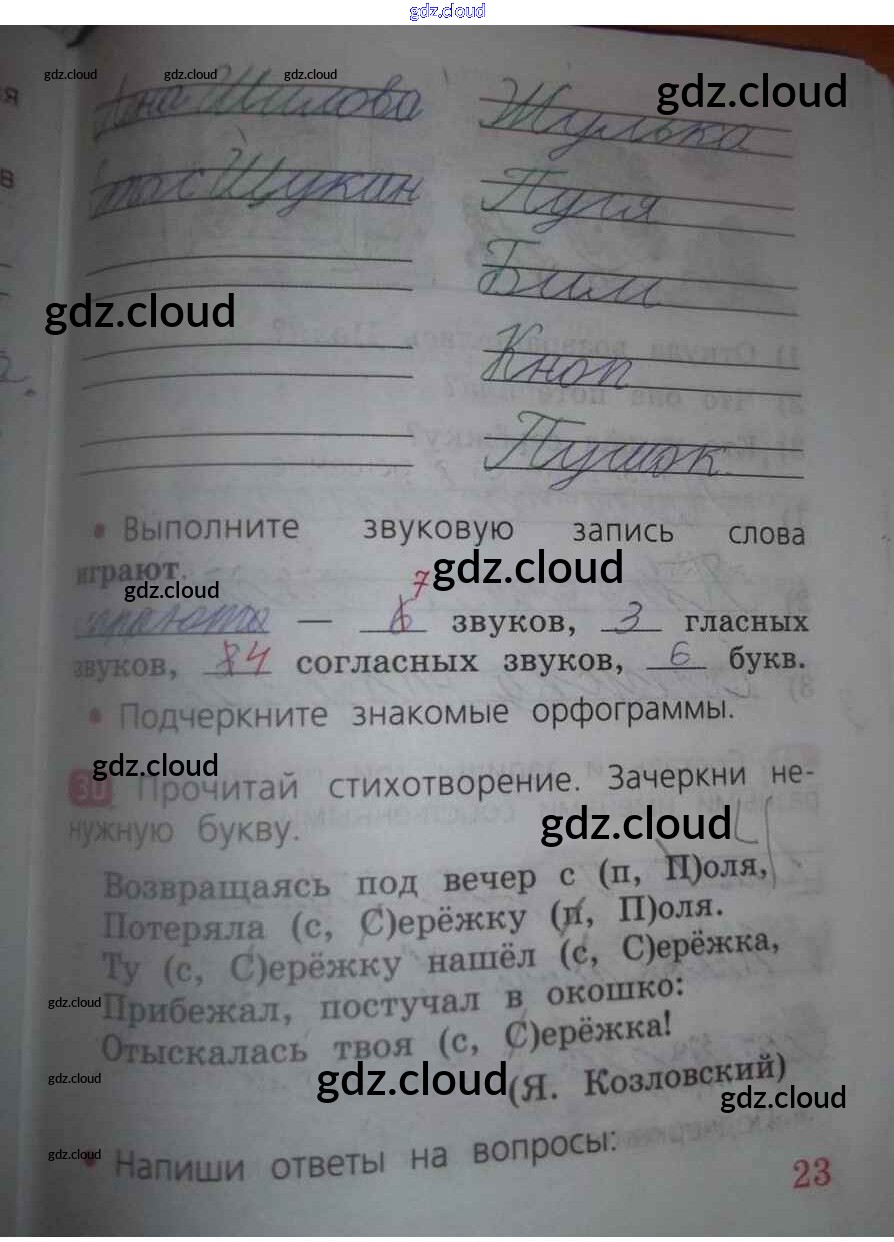 gdz.cloud
gdz.cloud gdz.cloud gdz.cloud
gdz.cloud
Шилова Жулька
Щукин Пуля
Бим
gdz.cloud
Кноп
Пушок
• Выполните звуковую запись слова
играют.
gdz.cloud
gdz.cloud
7
— 6 звуков, 3 гласных
звуков, 4 согласных звуков, 6 букв.
• Подчеркните знакомые орфограммы.
gdz.cloud
30 Прочитай стихотворение. Зачеркни не-
нужную букву.
gdz.cloud
Возвращаясь под вечер с (п, П)оля,
Потеряла (с, С)ерёжку (п, П)оля.
Ту (с, С)ерёжку нашёл (с, С)ерёжка,
gdz.cloud
Прибежал, постучал в окошко:
Отыскалась твоя (с, С)ерёжка!
gdz.cloud
gdz.cloud
(Я. Козловский)
gdz.cloud
gdz.cloud
• Напиши ответы на вопросы:
23